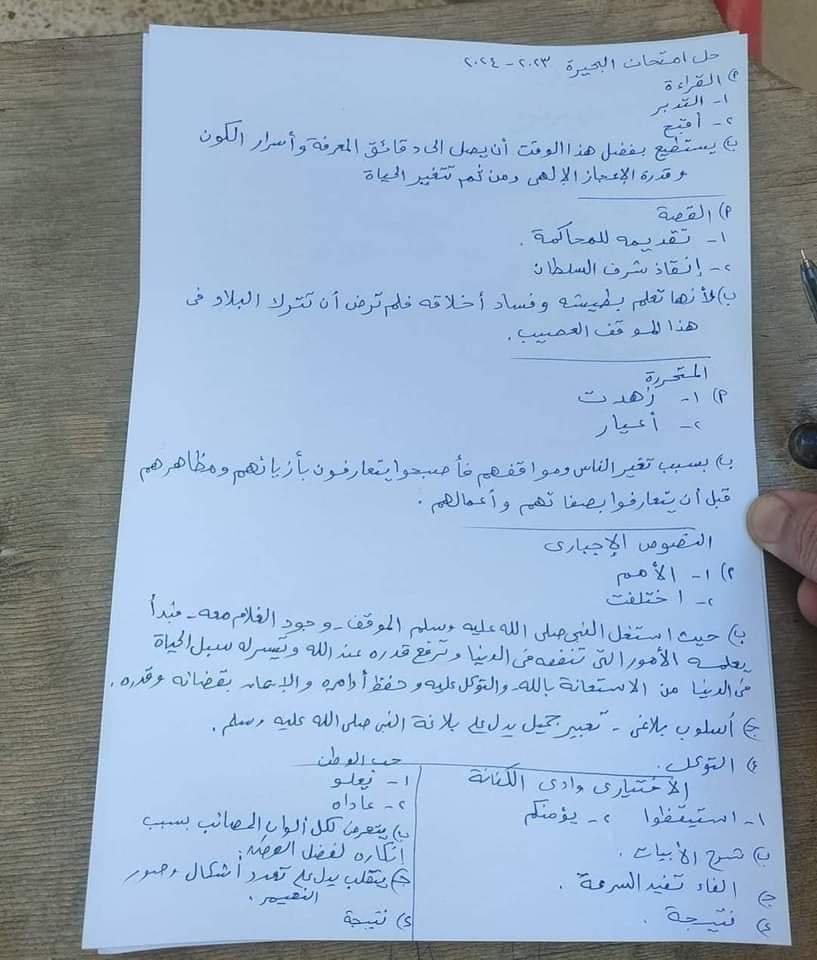 حل امتحان البحيرة ٢٠٢٣ - ٢٠٢٤
أ) القراءة
١- التدبر
٢- أقبح
ب) يستطيع بفضل هذا الوقت أن يصل الى دقائق المعرفة وأسرار الكون
وقدرة الإعجاز الإلهى ومن ثم تتغير الحياة
أ) القصة
١- تقديمه للمحاكمة .
٢- إنقاذ شرف السلطان
ب) لأنها تعلم بطيشه وفساد أخلاقه فلم ترض أن تترك البلاد فى
هذا الموقف العصيب .
المتحررة
أ) ١- زهدت
٢- أعيار
ب) بسبب تغير الناس ومواقفهم فأصبحوا يتعارفون بأزيائهم ومظاهرهم
قبل أن يتعارفوا بصفاتهم وأعمالهم .
النصوص الإجبارى
أ) ١- الأهم
٢- اختلفت
ب) حيث استغل النبى صلى الله عليه وسلم الموقف - وجود الغلام معه - فبدأ
يعلمه الأمور التى تنفعه فى الدنيا وترفع قدره عند الله وتيسر له سبل الحياة
فى الدنيا من الاستعانة بالله والتوكل عليه وحفظ أوامره والإيمان بقضائه وقدره .
ج) أسلوب بلاغى - تعبير جميل يدل على بلاغة النبى صلى الله عليه وسلم .
ء) التوكل .
الاختيارى وادى الكنانة
١- استيقظوا ٢- يؤمنكم
ب) شرح الأبيات .
ج) الفاء تفيد السرعة .
ء) نتيجة .
حب الوطن
١- نعلو
٢- عاداه
ب) يتعرض لكل ألوان المصائب بسبب
إنكاره لفضل
ج) يتقلب يدل على تعدد أشكال وصور
النعيم .
ء) نتيجة